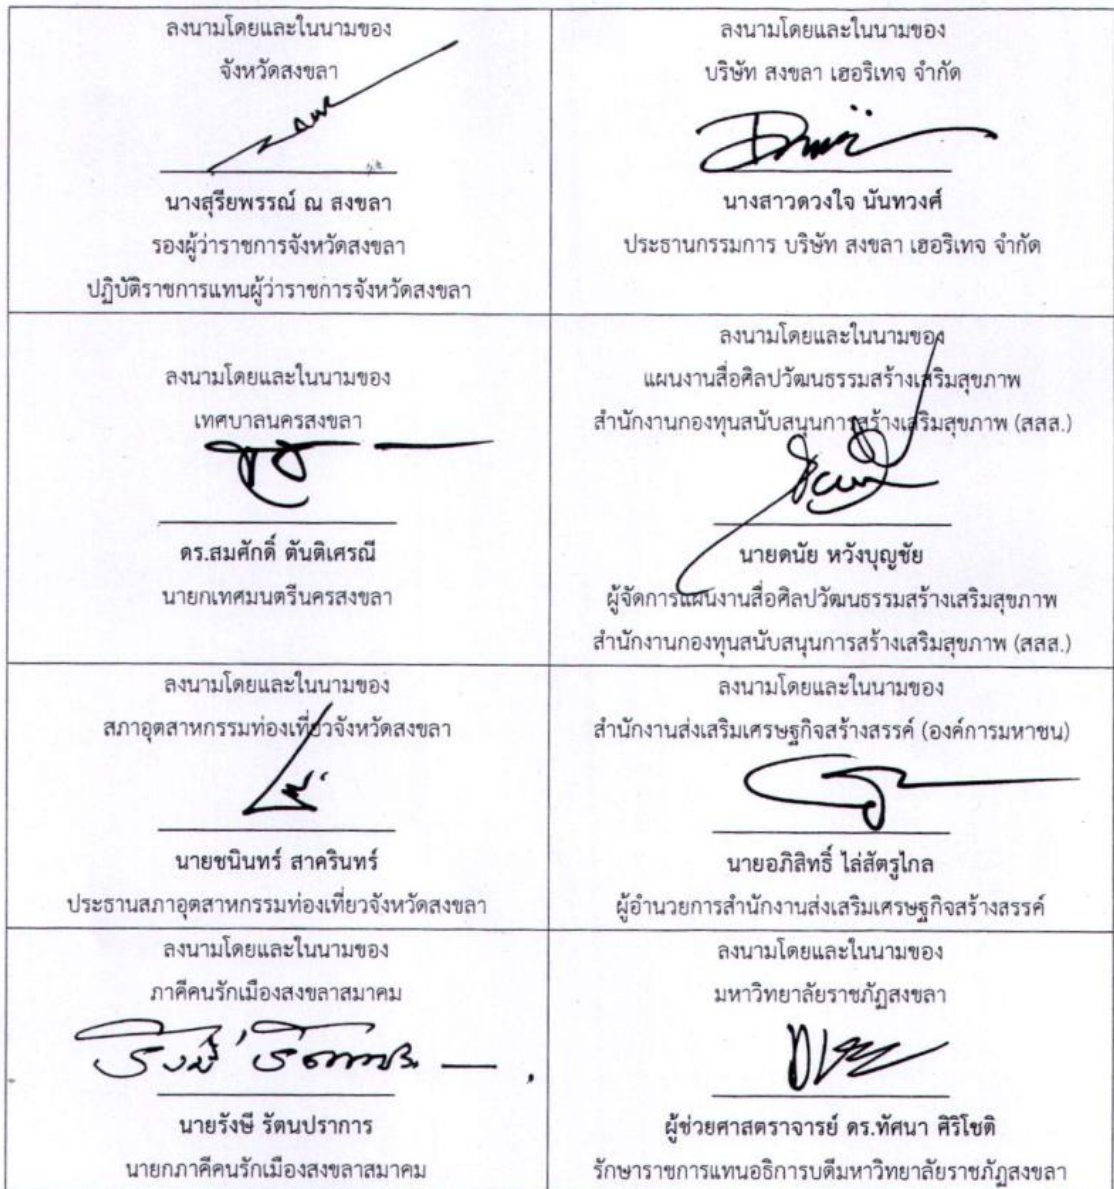 ลงนามโดยและในนามของ
จังหวัดสงขลา
นางสุรียพรรณ์ ณ สงขลา
รองผู้ว่าราชการจังหวัดสงขลา
ปฏิบัติราชการแทนผู้ว่าราชการจังหวัดสงขลา
ลงนามโดยและในนามของ
บริษัท สงขลา เฮอริเทจ จำกัด
นางสาวดวงใจ นันทวงศ์
ประธานกรรมการ บริษัท สงขลา เฮอริเทจ จำกัด
ลงนามโดยและในนามของ
เทศบาลนครสงขลา
ดร.สมศักดิ์ ตันติเศรณี
นายกเทศมนตรีนครสงขลา
ลงนามโดยและในนามของ
แผนงานสื่อศิลปวัฒนธรรมสร้างเสริมสุขภาพ
สำนักงานกองทุนสนับสนุนการสร้างเสริมสุขภาพ (สสส.)
นายดนัย หวังบุญชัย
ผู้จัดการแผนงานสื่อศิลปวัฒนธรรมสร้างเสริมสุขภาพ
สำนักงานกองทุนสนับสนุนการสร้างเสริมสุขภาพ (สสส.)
ลงนามโดยและในนามของ
สภาอุตสาหกรรมท่องเที่ยวจังหวัดสงขลา
นายชนินทร์ สาครินทร์
ประธานสภาอุตสาหกรรมท่องเที่ยวจังหวัดสงขลา
ลงนามโดยและในนามของ
สำนักงานส่งเสริมเศรษฐกิจสร้างสรรค์ (องค์การมหาชน)
นายอภิสิทธิ์ ไล่สัตรูไกล
ผู้อำนวยการสำนักงานส่งเสริมเศรษฐกิจสร้างสรรค์
ลงนามโดยและในนามของ
ภาคีคนรักเมืองสงขลาสมาคม
นายรังษี รัตนปราการ
นายกภาคีคนรักเมืองสงขลาสมาคม
ลงนามโดยและในนามของ
มหาวิทยาลัยราชภัฏสงขลา
ผู้ช่วยศาสตราจารย์ ดร.ทัศนา ศิริโชติ
รักษาราชการแทนอธิการบดีมหาวิทยาลัยราชภัฏสงขลา